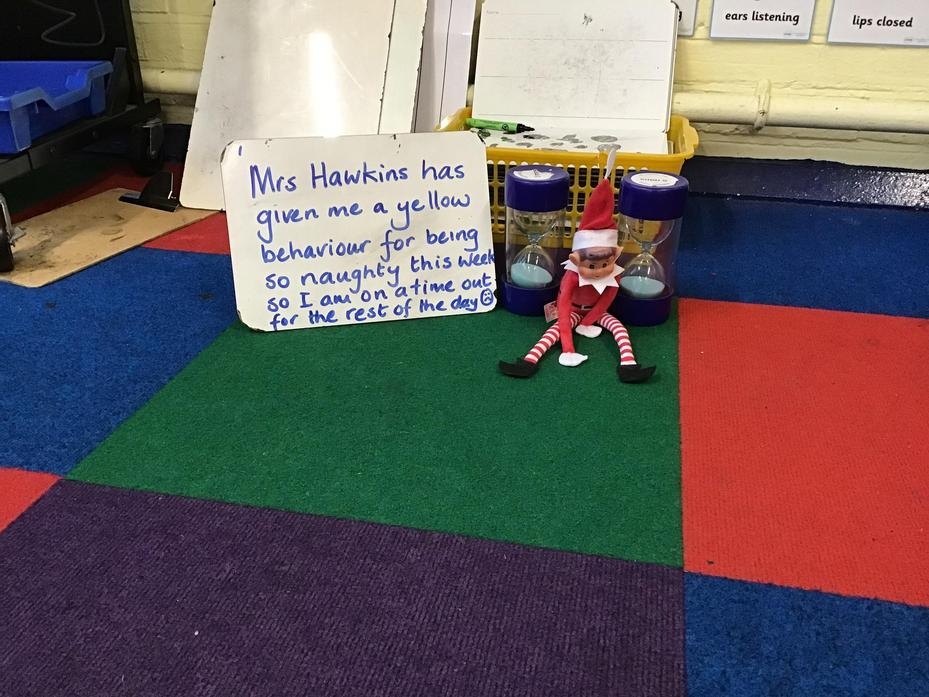 ears listening
lips closed
Mrs Hawkins has
given me a yellow
behaviour for being
so naughty this week
so I am on a time out
for the rest of the day